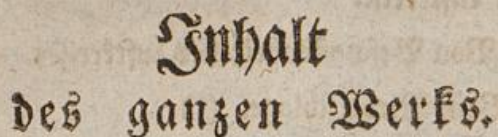 Inhalt
des ganzen Werks.